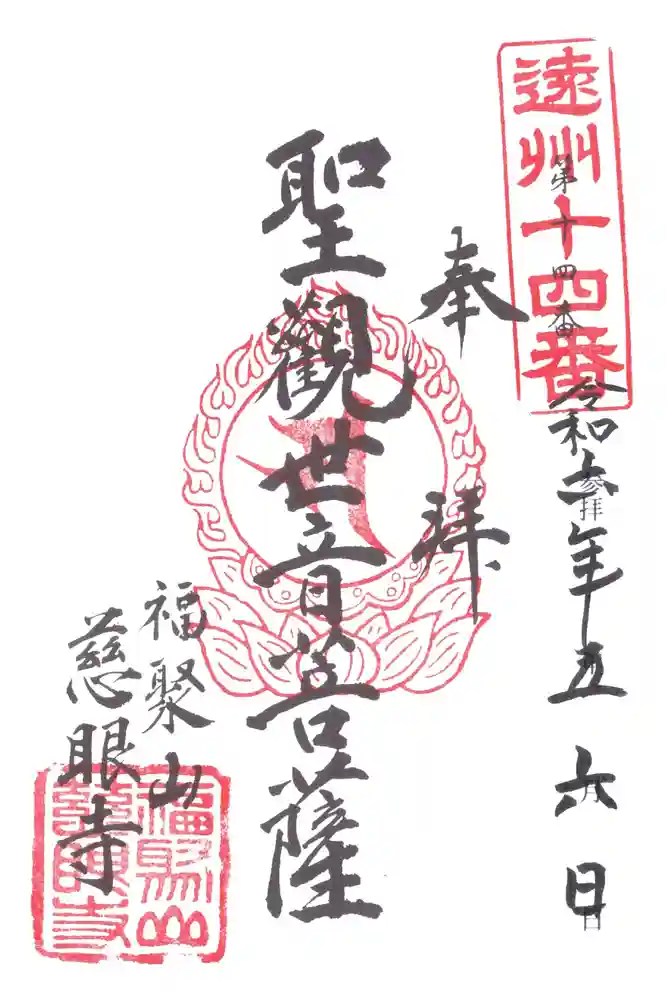 遠州十四番
第十四番 参拝 月 日
令和 年五 六日
奉拜
聖觀世音菩薩
福聚山
慈眼寺
福聚山
慈眼寺